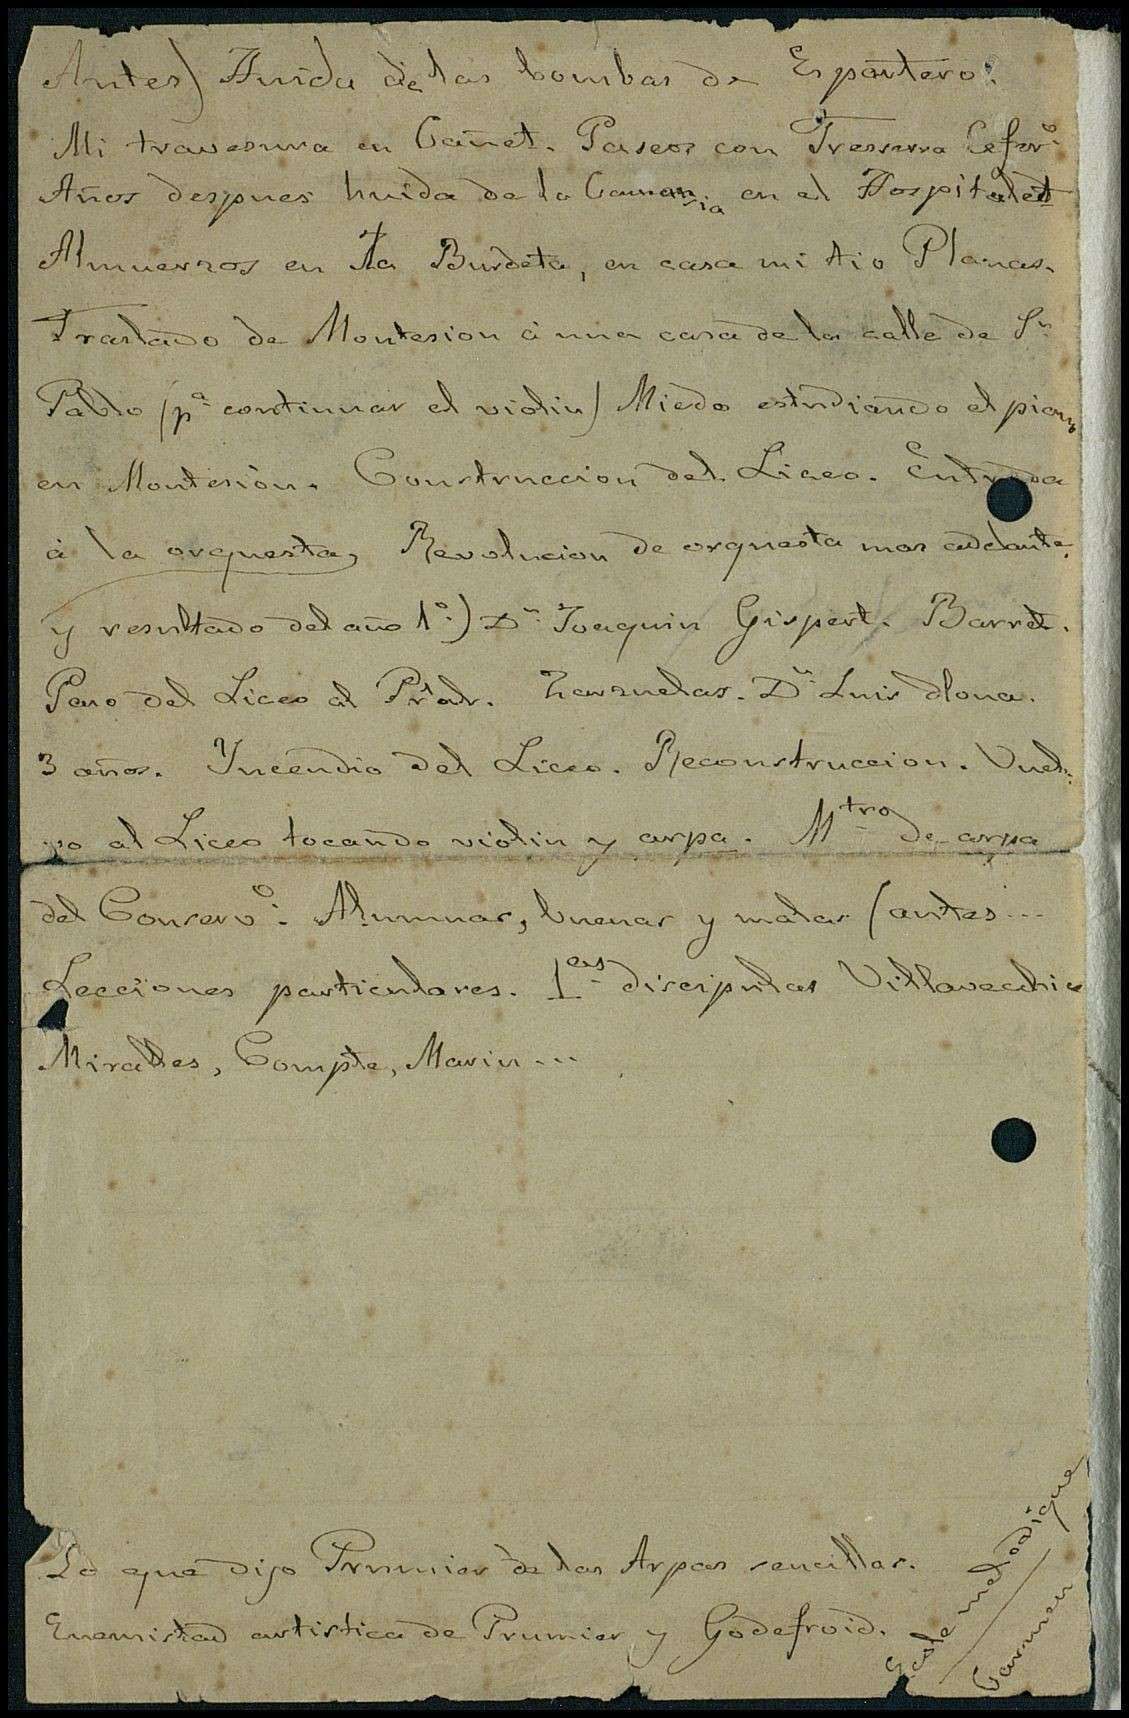 Antes) Huida de las bombas de Espartero.
Mi travesura en Cañet. Paseos con Tresserra Cefer.º
Años despues huida de la en el Hospitalet
Almuerzos en la Burdeta, en casa mi tio Planas.
Traslado de Montesion á una casa de la calle de Sⁿ
Pablo (pª continuar el violin) Miedo estudiando el piano
en Montesion. Construccion del Liceo. Entrada
á la orquesta, Revolucion de orquesta mas adelante.
y resultado del año 1º.) Dⁿ Joaquin Gispert. Barret.
Paso del Liceo al Pral. Zarzuelas. Dⁿ Luis
3 años. Yncendio del Liceo. Reconstruccion. Vuel-
vo al Liceo tocando violin y arpa. Mtro de arpa
del Conservº. Alumnas, buenas y malas (antes...
Lecciones particulares. 1as discipulas Villavecchia
Miralles, Compte, Marin...
Lo que dijo Prumier de las Arpas sencillas.
Enemistad artistica de Prumier y Godefroid.
Ecole melodique
Carmen